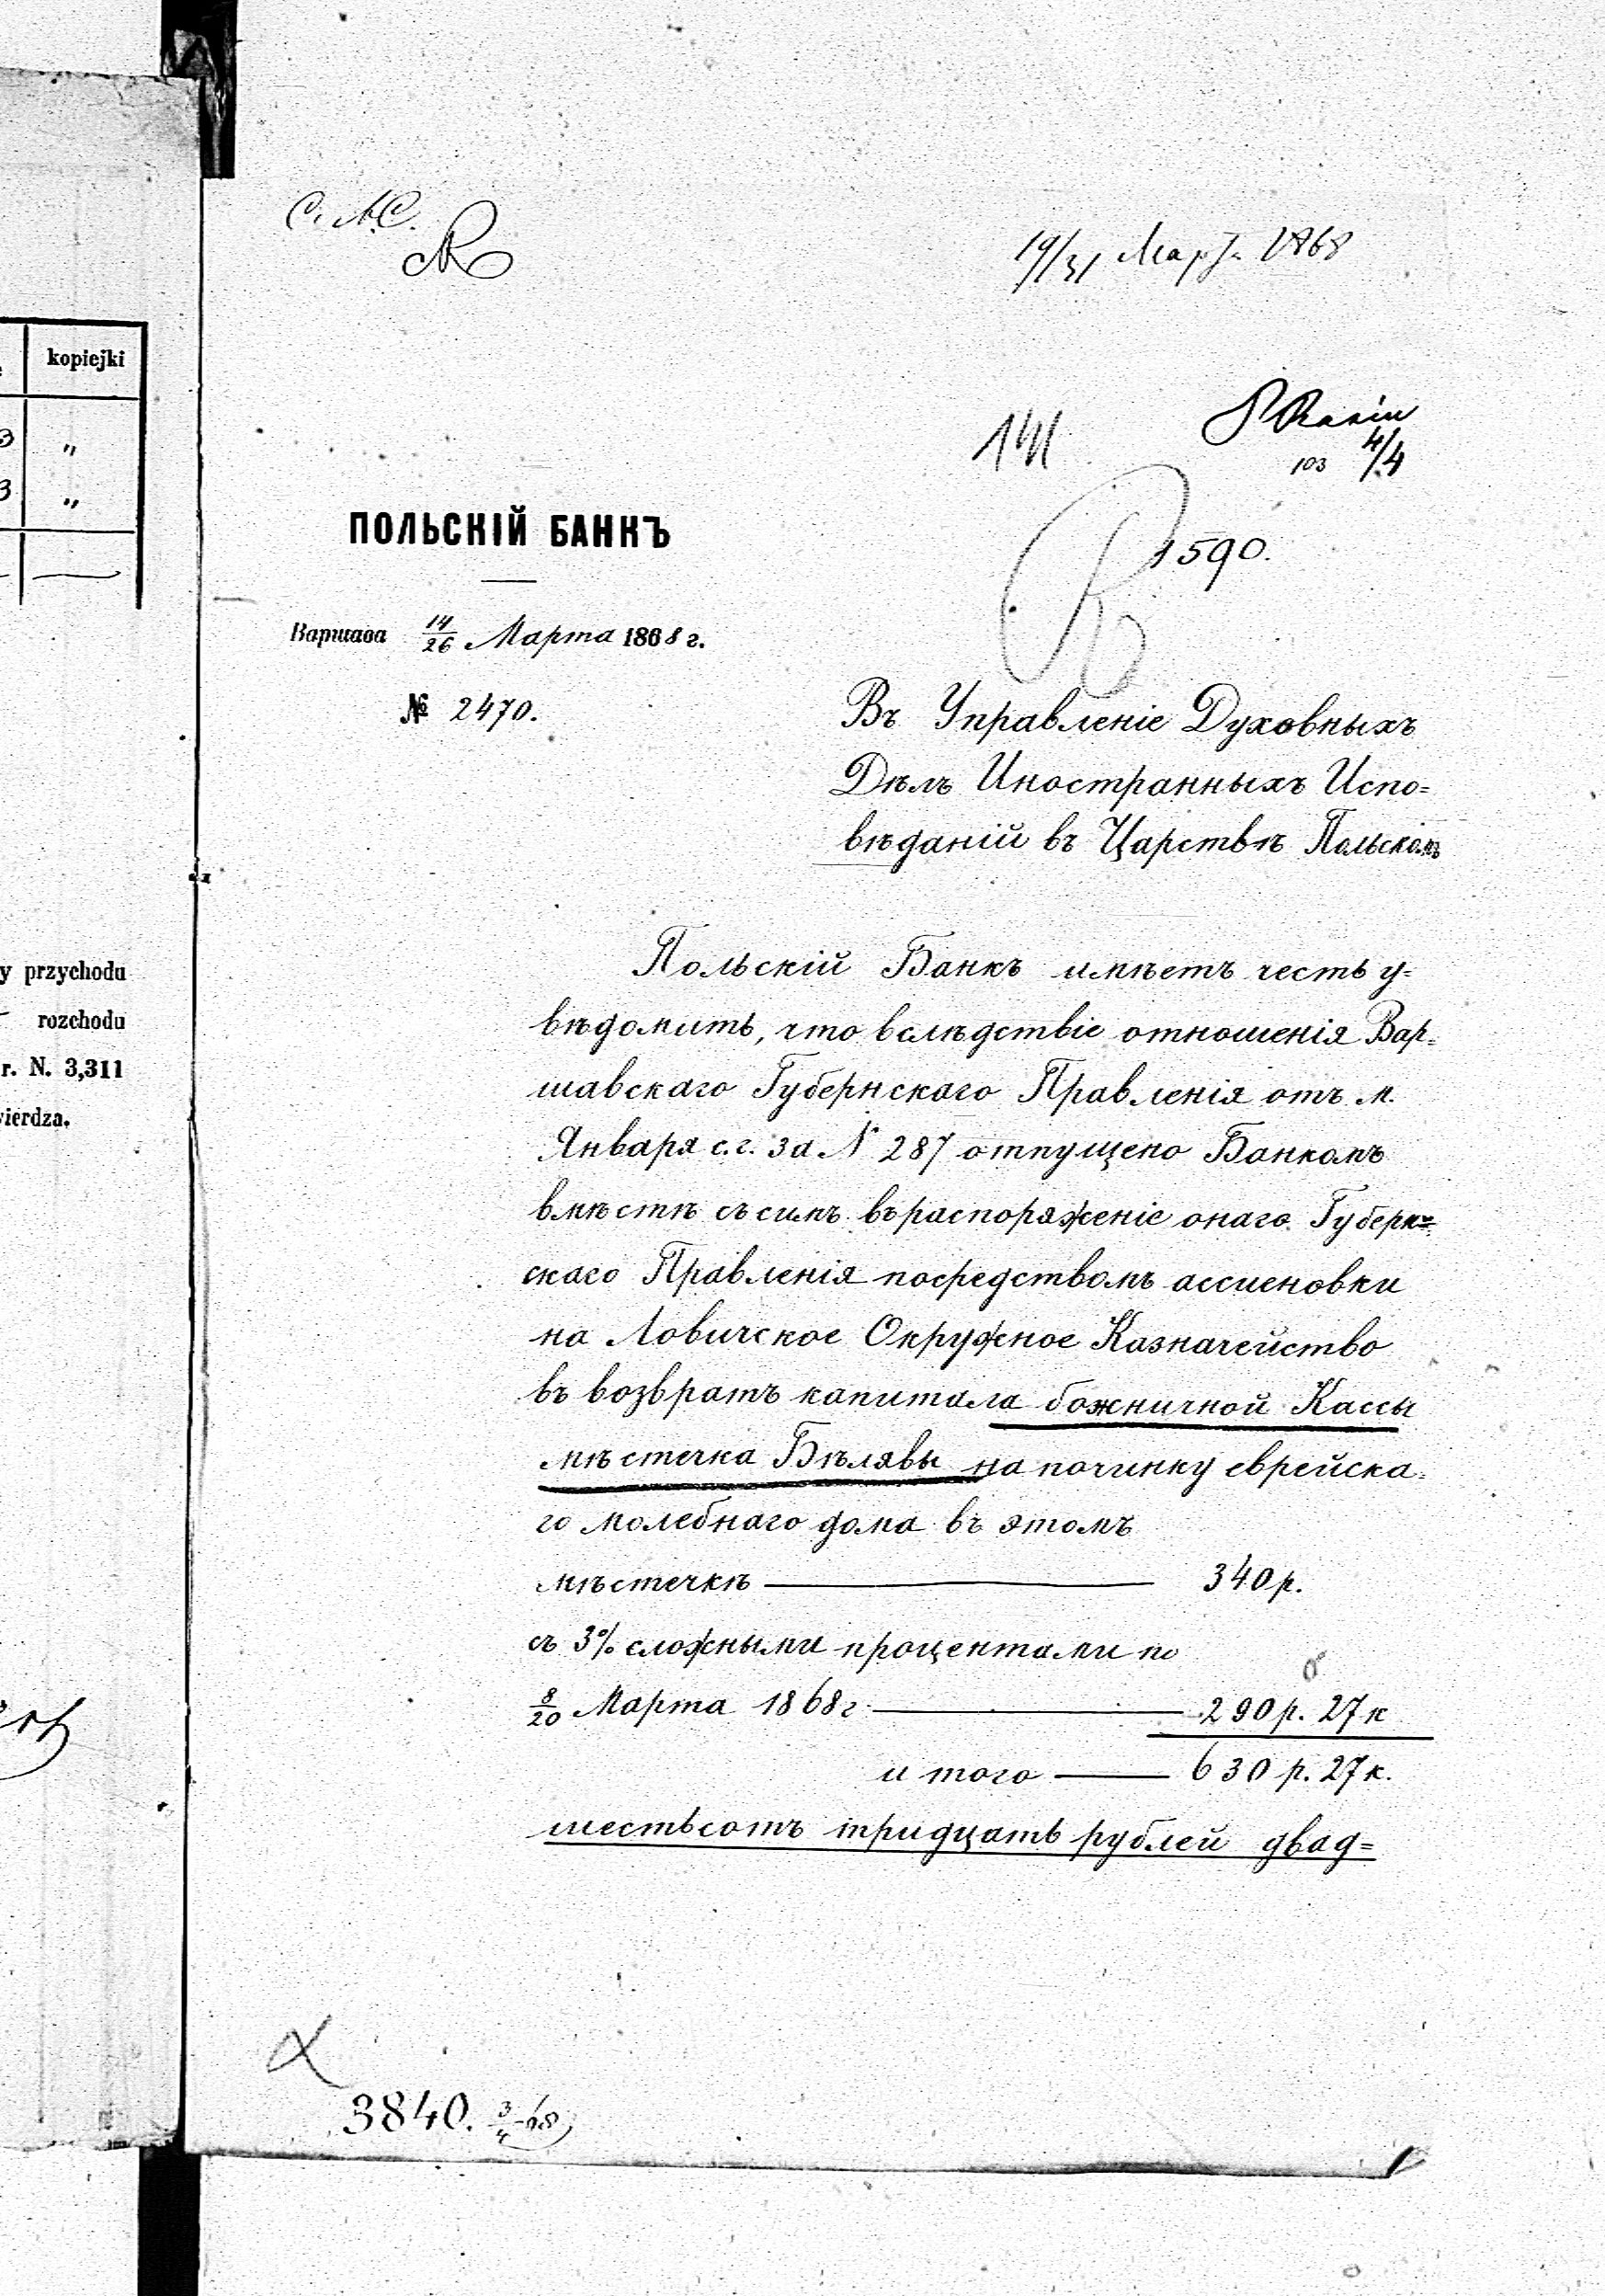 kopiejki
"
"
y przychodu
rozchodu
r. N. 3,311
wierdza.
С. М.С.
19/31 Март. 1868
141
4/4
103
1590.
ПОЛЬСКІЙ БАНКЪ
Варшава 14/26 Марта 1868 г.
№ 2470.
Въ Управленіе Духовныхъ
Дѣлъ Иностранныхъ Испо=
вѣданій въ Царствѣ Польскомъ
Польскій Банкъ имѣетъ честь у=
вѣдомить, что вслѣдствіе отношенія Вар=
шавскаго Губернскаго Правленія отъ м.
Января с.г. за № 287 отпущено Банкомъ
вмѣстѣ съ симъ въ распоряженіе онаго Губерн=
скаго Правленія посредствомъ ассигновки
на Ловичское Окружное Казначейство
въ возвратъ капитала божничной Кассы
мѣстечка Бѣлявы на починку еврейска=
го молебнаго дома въ этомъ
мѣстечкѣ — 340 р.
съ 3% сложными процентами по
8/20 Марта 1868 г. — 290 р. 27 к
и того — 630 р. 27 к.
шестьсотъ тридцать рублей двад=
3840. 3/4 68